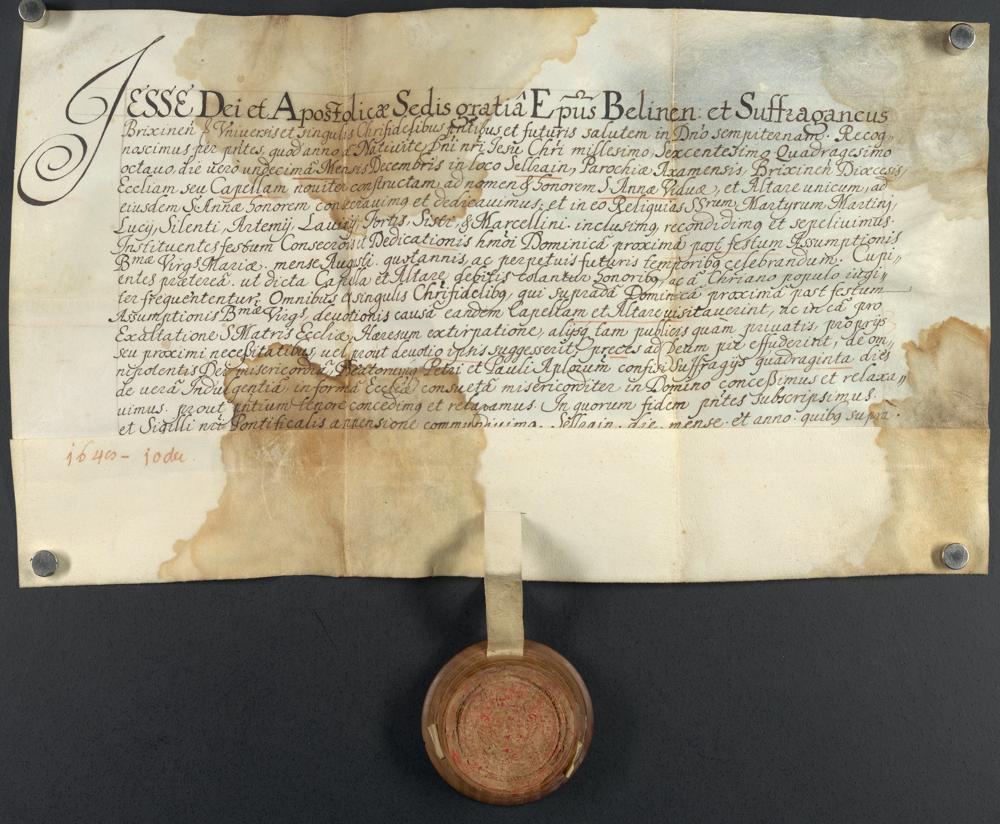 JESSE Dei et Apostolicæ Sedis gratiâ Epus Belinen: et Suffraganeus
Brixinen Universis et singulis Chrifidelibus pntibus et futuris salutem in Dno sempiternam. Recog„
noscimus per pntes, quod anno a Nitiuite Dni nri Jesu Chri millesimo, Sexcentesimo Quadragesimo
octauo, die uero undecimâ Mensis Decembris in loco Sellrain, Parochiæ Axamensis, Brixinen Diœcesis,
Eccliam seu Capellam nouiter constructam, ad nomen & honorem S Annæ Viduæ, et Altare unicum, ad
eiusdem S Annæ honorem consecrauimq et dedicauimus: et in eo Reliquias SSrum Martyrum Martini,
Lucij, Silenti, Artemij, Laurij, Fortis, Sisti, & Marcellini inclusimq, recondidimq et sepeliuimus.
Instituentes festum Dedicationis hmoi Dominicâ proximâ post festum Assumptionis
Bmæ Virgs Mariæ, mense Augusti quotannis, ac perpetuis futuris temporibq celebrandum. Cupi„
entes præterea, ut dicta Capella et Altare debitis colantur honoribq, ac à Chriano populo iugi„
ter frequententur: Omnibus et singulis Chrifidelibq, qui supradâ Dominicâ proximâ post festum
Assumptionis Bmæ Virgs, deuotionis causâ eandem Capellam et Altare uisitauerint, ac in eâ pro
Exaltatione S Matris Eccliæ, Hæresum extirpatione, alijsq tam publicis quam priuatis, proprijs
seu proximi necessitatibus, uel prout deuotio ipsis suggesserit, preces ad Deum piè effuderint, de om„
nipotentis Dei misericordiâ, Beatorumq Petri et Pauli Aplorum confisi Suffragijs quadraginta dies
de uerâ Indulgentiâ in formâ Eccliæ consuetâ misericorditer in Domino concessimus et relaxa„
uimus, prout pntium tenore concedimq et relaxamus. In quorum fidem pntes subscripsimus,
et Sigilli nri Pontificalis appensione communiuimq. Sellrain, die, mense, et anno, quibq supra.